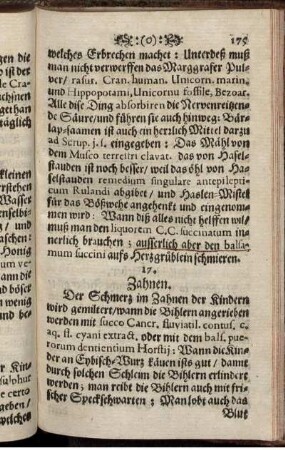 ❧:(0):❧ 175
welches Erbrechen machet: Unterdeß muß
man nicht verwerffen das Marggrafer Pul-
ver/ rasur. Cran. human. Unicorn. marin.
und Hippopotami, Unicornu fossile, Bezoar.
Alle dise Ding absorbiren die Nervenreitzen-
de Säure/ und führen sie auch hinweg: Bär-
lap-saamen ist auch ein herzlich Mittel darzu
ad Scrup. j. ſ. eingegeben: Das Mähl von
dem Musco terrestri clavat. das von Hasel-
stauden ist noch besser/ weil das öhl von Ha-
selstauden remedium singulare antepilepti-
cum Rulandi abgibet/ und Haslen-Mistel
für das Bößwehe angehenkt und eingenom-
men wird: Wann diß alles nicht helffen wil/
muß man den liquorem C.C. succinatum in-
nerlich brauchen; äusserlich aber den balsa-
mum succini aufs Hertzgrüblein schmieren.
17.
Zahnen.
Der Schmertz im Zahnen der Kindern
wird gemiltert/ wann die Bihlern angerieben
werden mit succo Cancr. fluviatil. contus. c.
aq. fl. cyani extract. oder mit dem bals. pue-
rorum dentientium Horstij: Wann die Kin-
der an Eybisch-Wurz käuen ists gut/ damit
durch solchen Schleim die Bihlern erlindert
werden; man reibt die Bihlern auch mit fri-
scher Speckschwarten; Man lobt auch das
Blut